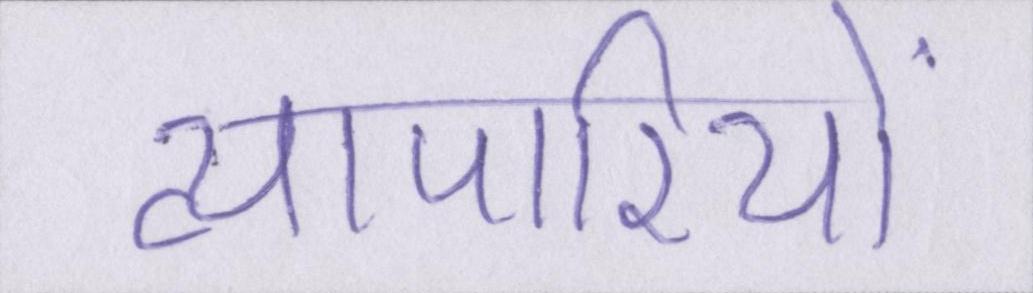 व्यापारियों